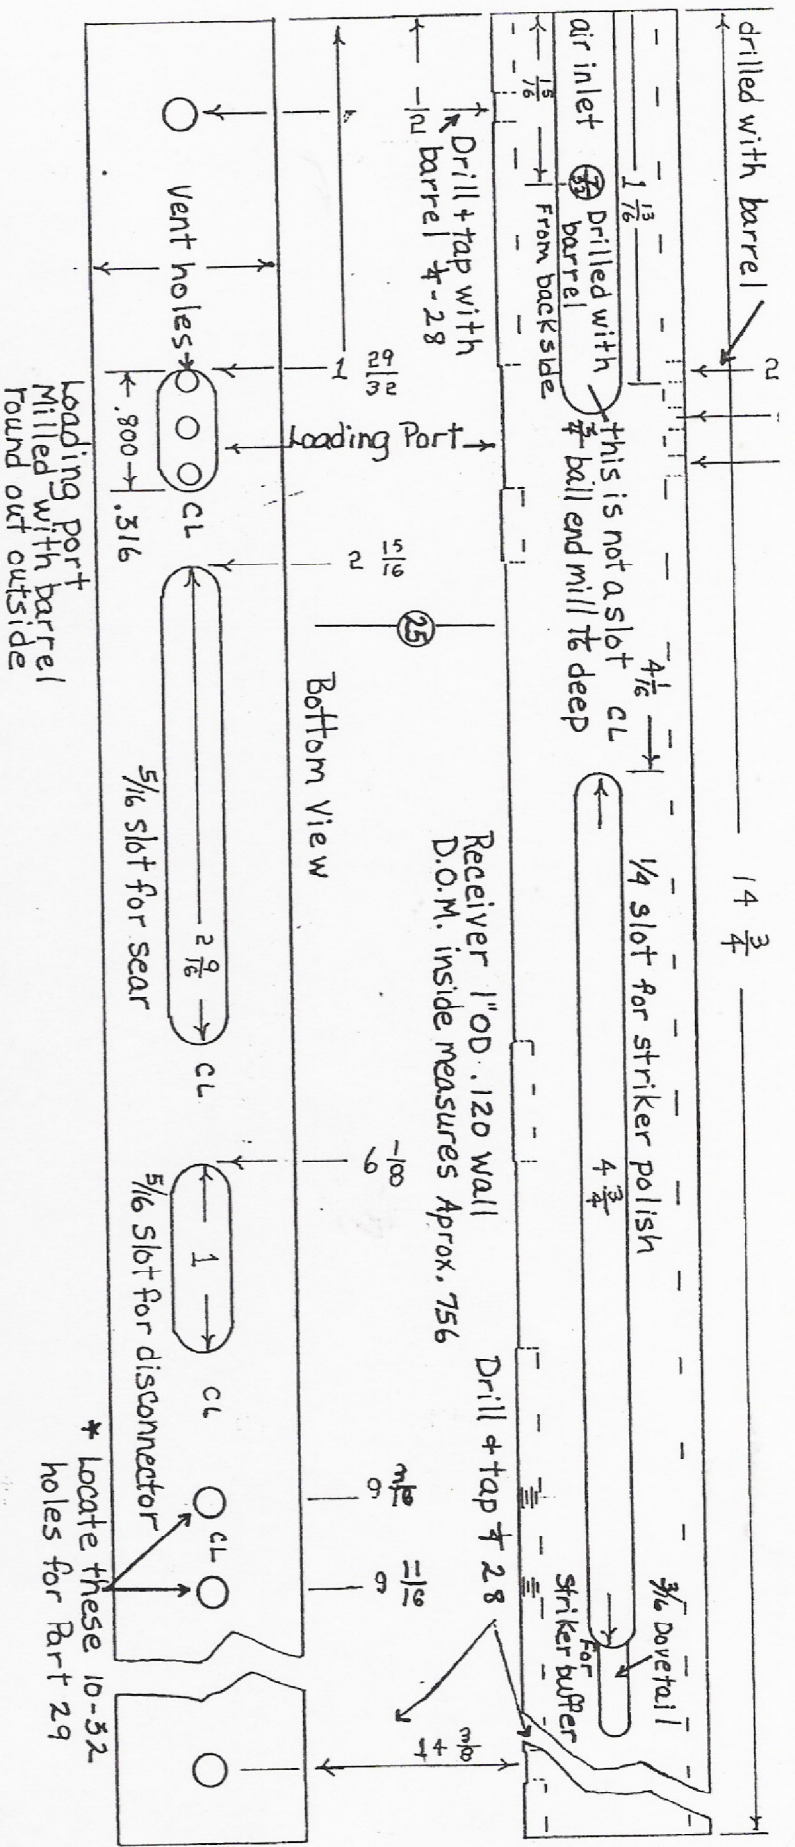 drilled with barrel
14 3/4
2
1 13/16
air inlet
7/32 Drilled with
barrel
15/16
From backside
this is not a slot CL
ball end mill 1/16 deep
4 1/16
1/4 slot for striker polish
4 3/4
3/16 Dovetail
For
striker buffer
Drill + tap with
barrel 1/4-28
1/2
Loading Port
Receiver 1"OD .120 wall
D.O.M. inside measures Aprox. .756
Drill + tap 1/4 28
1 29/32
2 15/16
25
Bottom View
6 1/100
9 11/16
Vent holes
CL
.800
.316
Loading port
Milled with barrel
round out outside
5/16 slot for sear
2 9/16
CL
5/16 Slot for disconnector
1
CL
CL
* Locate these 10-32
holes for Part 29